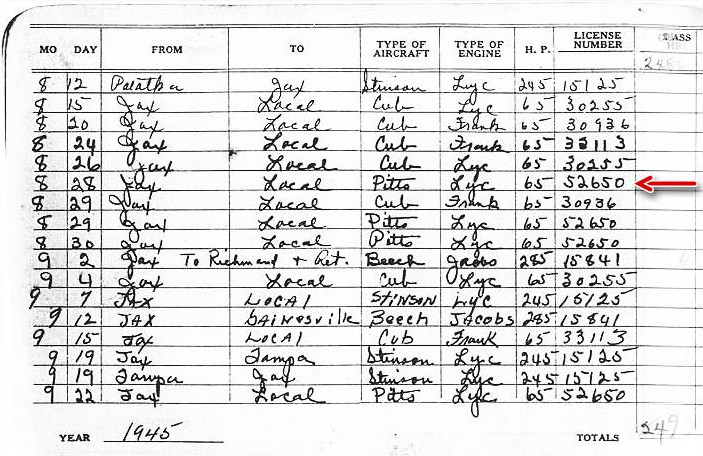 MO DAY FROM TO TYPE OF AIRCRAFT TYPE OF ENGINE H. P. LICENSE NUMBER CLASS
8 12 Palatka Jax Stinson Lyc 245 15125
8 15 Jax Local Cub Lyc 65 30255
8 20 Jax Local Cub Frank 65 30936
8 24 Jax Local Cub Frank 65 33113
8 26 Jax Local Cub Lyc 65 30255
8 28 Jax Local Pitts Lyc 65 52650
8 29 Jax Local Cub Frank 65 30936
8 29 Jax Local Pitts Lyc 65 52650
8 30 Jax Local Pitts Lyc 65 52650
9 2 Jax To Richmond + Ret. Beech Jacobs 285 15841
9 4 Jax Local Cub Lyc 65 30255
9 7 JAX LOCAL STINSON LYC 245 15125
9 12 JAX GAINESVILLE Beech JACOBS 285 15841
9 15 Jax LOCAL Cub Frank 65 33113
9 19 Jax Tampa Stinson Lyc 245 15125
9 19 Tampa Jax Stinson Lyc 245 15125
9 22 Jax Local Pitts Lyc 65 52650
YEAR 1945 TOTALS 249